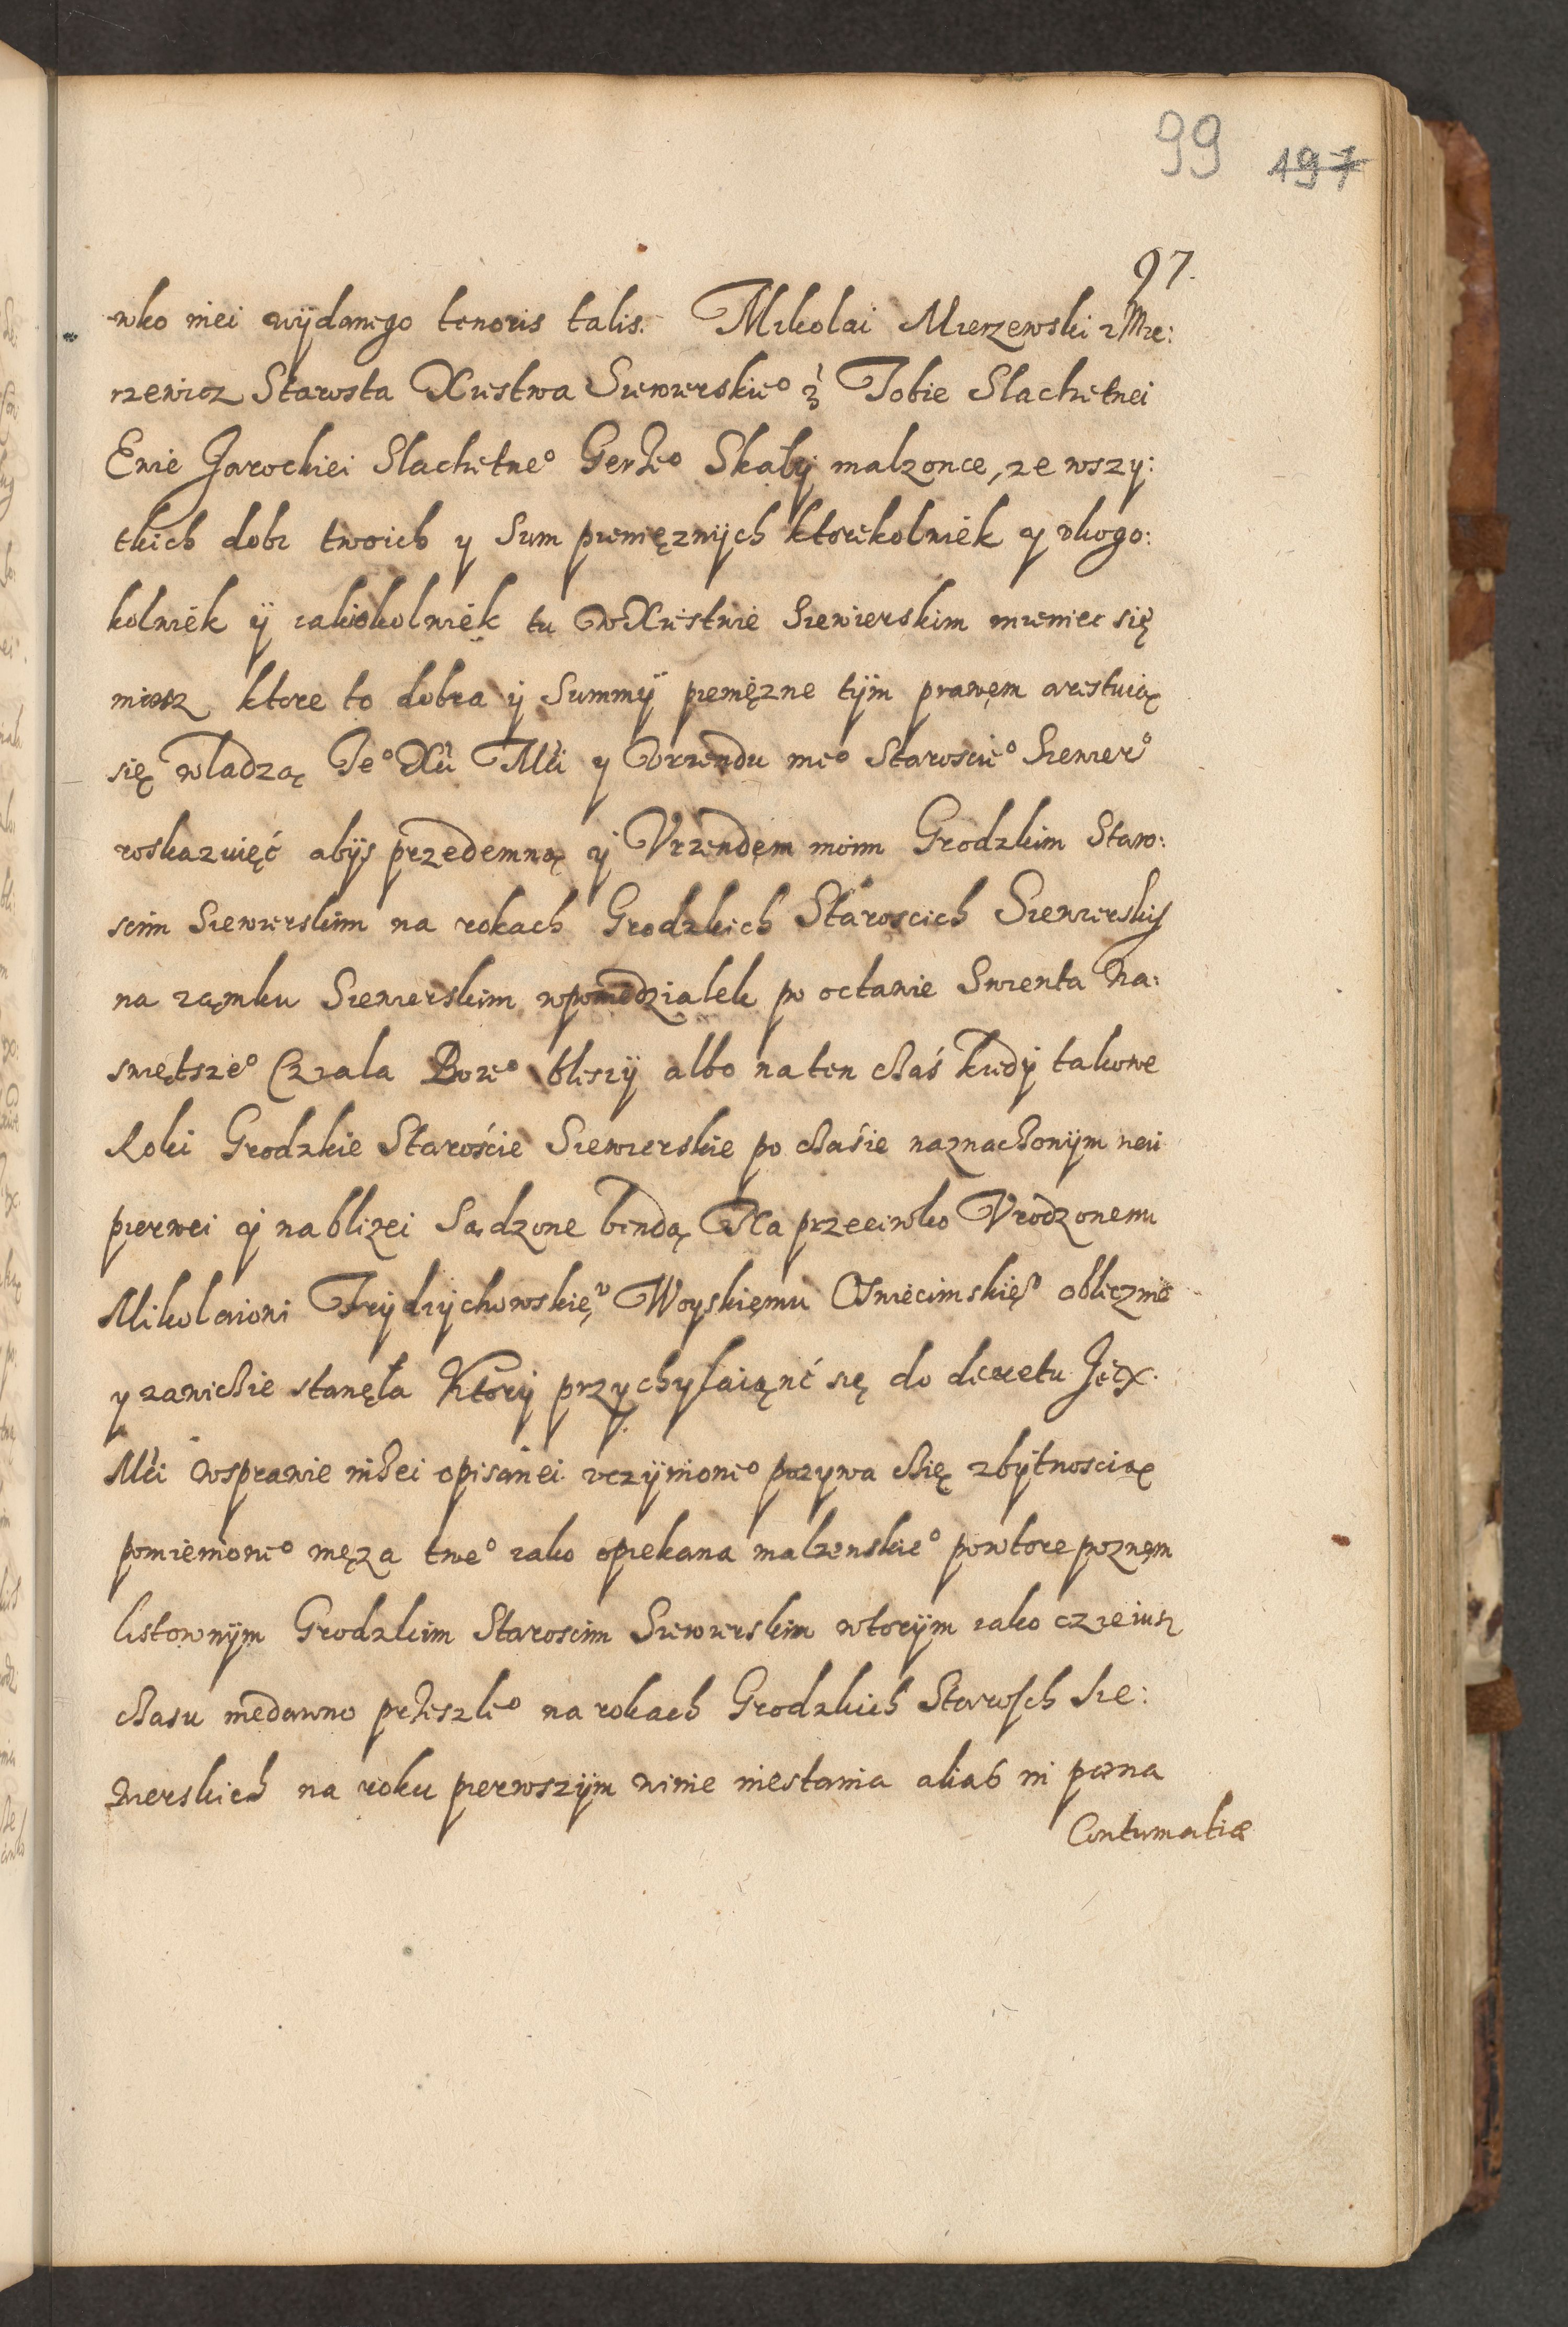 99 197
97.
wko niei wÿdanego tenoris talis. Mikolai Mierzewski z Mie:
rzewicz Starosta Xiestwa Siewierskie° Tobie Slachetnei
Ewie Jarockiei Slachetne° Gerże° Skałÿ malzonce, ze wszy:
tkich dobr twoich y Sum pieniężnÿch ktorekolwiek ÿ vkogo:
kolwiek ÿ iakiokolwiek tu w Xiestwie Siewierskim mieniec się
miasz ktore to dobra ÿ Summÿ pieniężne tÿm prawęm arestuię
się władzą Je° Xci Mci y Vrzendu me° Staroście° Siewier°
roskazuięć abÿs przedemną ÿ Vrzendęm moim Grodzkim Staro:
scim Siewierskim na rokach Grodzkich Staroscich Siewierskÿ
na zamku Siewierskim wponiedzialek po octawie Swienta Na:
swiętsze° Cziala Boże° bliszÿ albo na ten chas kiedÿ takowe
Roki Grodzkie Staroście Siewierskie po chaśie naznachonÿm neii
pierwei ÿ nablizei Sądzone bendą Na przeciwko Vrodzonemu
Mikolaiowi Frÿdrÿchowskię° Woyskięmu Oswiecimskię° oblicznie
y zawichie stanęła Ktory przychylaiąnć się do decretu Je° X.
Mci wsprawie niżei opisanei vczÿnione° pozywa chię zbÿtnoscią
pomienione° męża twe° iako opiekana malzenskie° powtore poznęm
listownÿm Grodzkim Staroscim Siewierskim wtorÿm iako czie iusz
chasu niedawno przeszle° na rokach Grodzkich Starosch Sie:
wierskich na roku pierwszÿm winie niestania alias in pœna
Contumatiæ